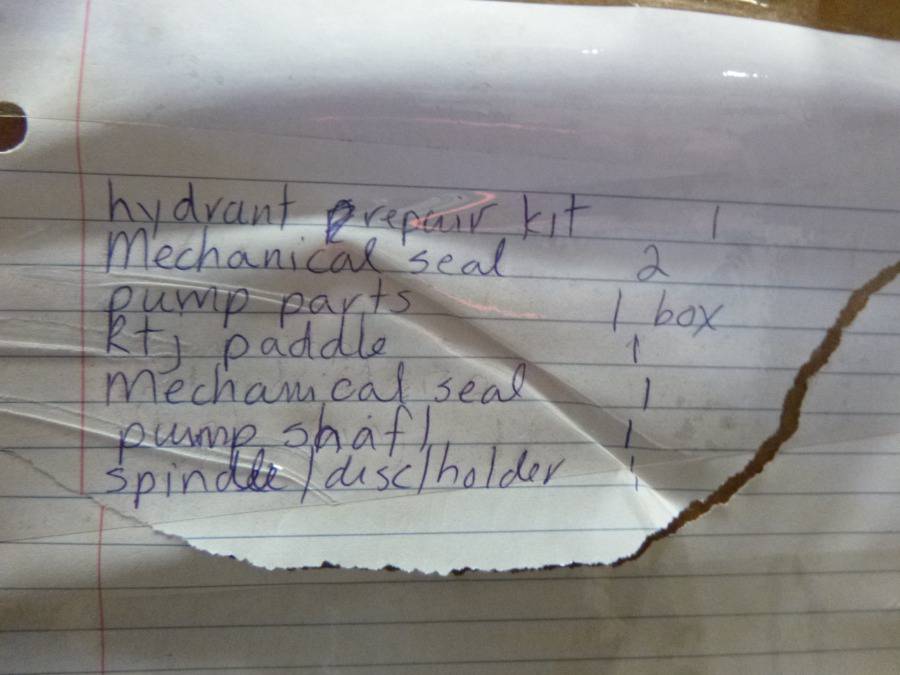 hydrant repair kit 1
Mechanical seal 2
pump parts 1 box
Rtj paddle 1
Mechanical seal 1
pump shaft 1
spindle/disc/holder 1